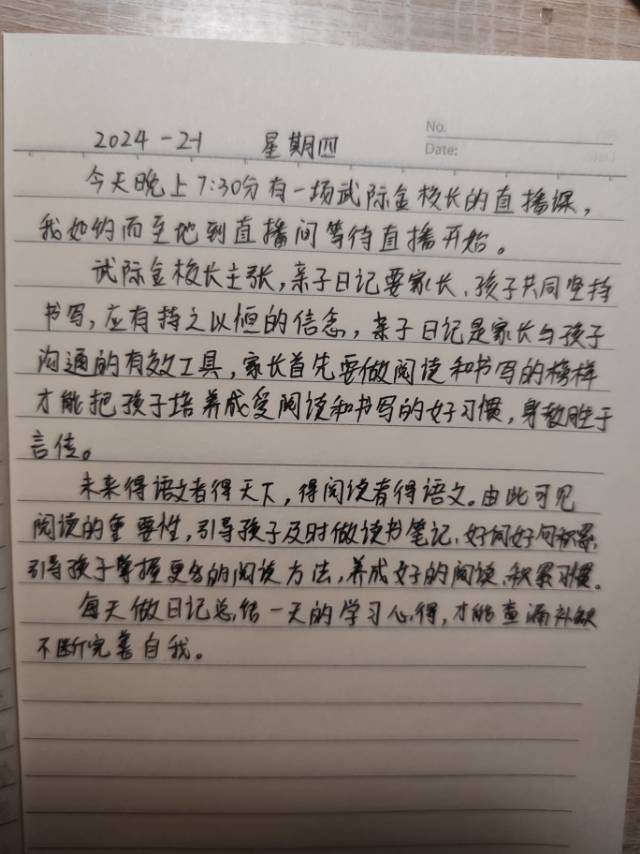 No.
2024-2-1 星期四
Date:
今天晚上7:30分有一场武际金校长的直播课,
我如约而至地到直播间等待直播开始。
武际金校长主张,亲子日记要家长、孩子共同坚持
书写,应有持之以恒的信念,亲子日记是家长与孩子
沟通的有效工具,家长首先要做阅读和书写的榜样
才能把孩子培养成爱阅读和书写的好习惯,身教胜于
言传。
未来得语文者得天下,得阅读者得语文。由此可见
阅读的重要性,引导孩子及时做读书笔记、好词好句积累,
引导孩子掌握更多的阅读方法,养成好的阅读、积累习惯。
每天做日记总结一天的学习心得,才能查漏补缺
不断完善自我。